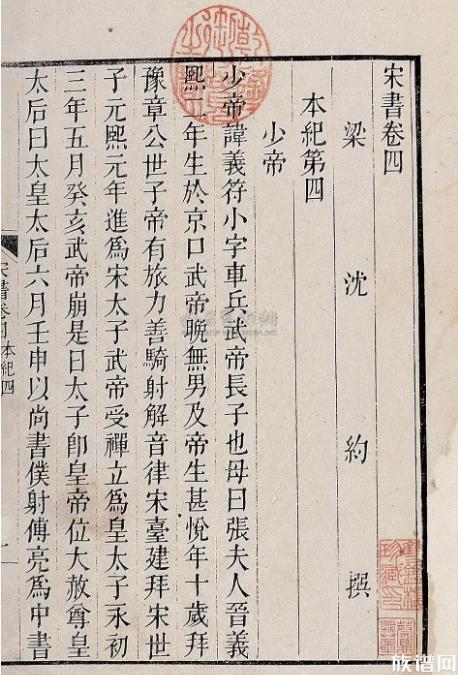 宋書卷四
梁 沈 約 撰
本紀第四
少帝
少帝諱義符小字車兵武帝長子也母曰張夫人晉義
熙二年生於京口武帝晚無男及帝生甚悅年十歲拜
豫章公世子帝有旅力善騎射解音律宋臺建拜宋世
子元熙元年進爲宋太子武帝受禪立爲皇太子永初
三年五月癸亥武帝崩是日太子卽皇帝位大赦尊皇
太后曰太皇太后六月壬申以尚書僕射傅亮爲中書
宋書卷四 本紀四
一
族谱网